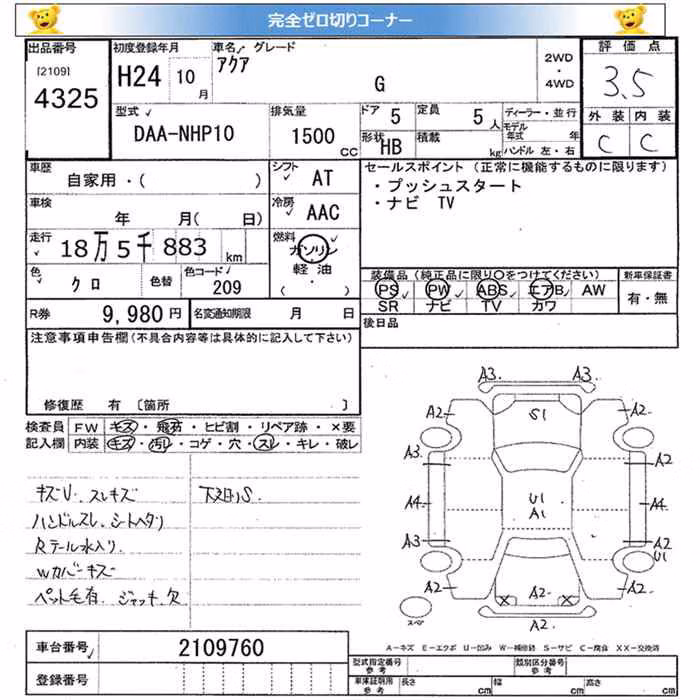 完全ゼロ切りコーナー
出品番号
[2109]
4325
初度登録年月
H24 10 月
車名 グレード
アクア
G
2WD
・
4WD
評価点
3.5
外装 内装
C C
型式
DAA-NHP10
排気量
1500 CC
ドア 5
定員 5 人
形状 HB
積載 kg
ディーラー・並行
モデル年式 年
ハンドル 左・右
車歴
自家用・( )
シフト AT
車検
年 月( 日)
冷房 AAC
走行
18万5千883 km
燃料
ガソリン
軽油
( ・ )
色 クロ
色替
色コード 209
セールスポイント (正常に機能するものに限ります)
・プッシュスタート
・ナビ TV
装備品(純正品に限り○をつけてください)
PS PW ABS エアB AW
SR ナビ TV カワ
新車保証書
有・無
R券 9,980 円
名変通知期限 月 日
後日品
注意事項申告欄(不具合内容等は具体的に記入して下さい)
修復歴 有 〔箇所 〕
検査員記入欄
FW キズ・飛石・ヒビ割・リペア跡・×要
内装 キズ・汚レ・コゲ・穴・スレ・キレ・破レ
キズU. スレキズ
下廻りS.
ハンドルスレ. シートヘタリ
Rテール水入り.
Wカバーキズ
ペット毛有. ジャッキ欠
A3. A3.
A2 S1 A2
A3. A2
A4 U1 A1 A4
A3 A2
U1
A2 A2. A2
X X
A2.
スペア
A-キズ E-エクボ U-凹み W-補修跡 S-サビ C-腐食 XX-交換済
車台番号 2109760
登録番号
型式指定番号 参考
類別区分番号 参考
車庫証明用 参考 長さ cm 幅 cm 高さ cm